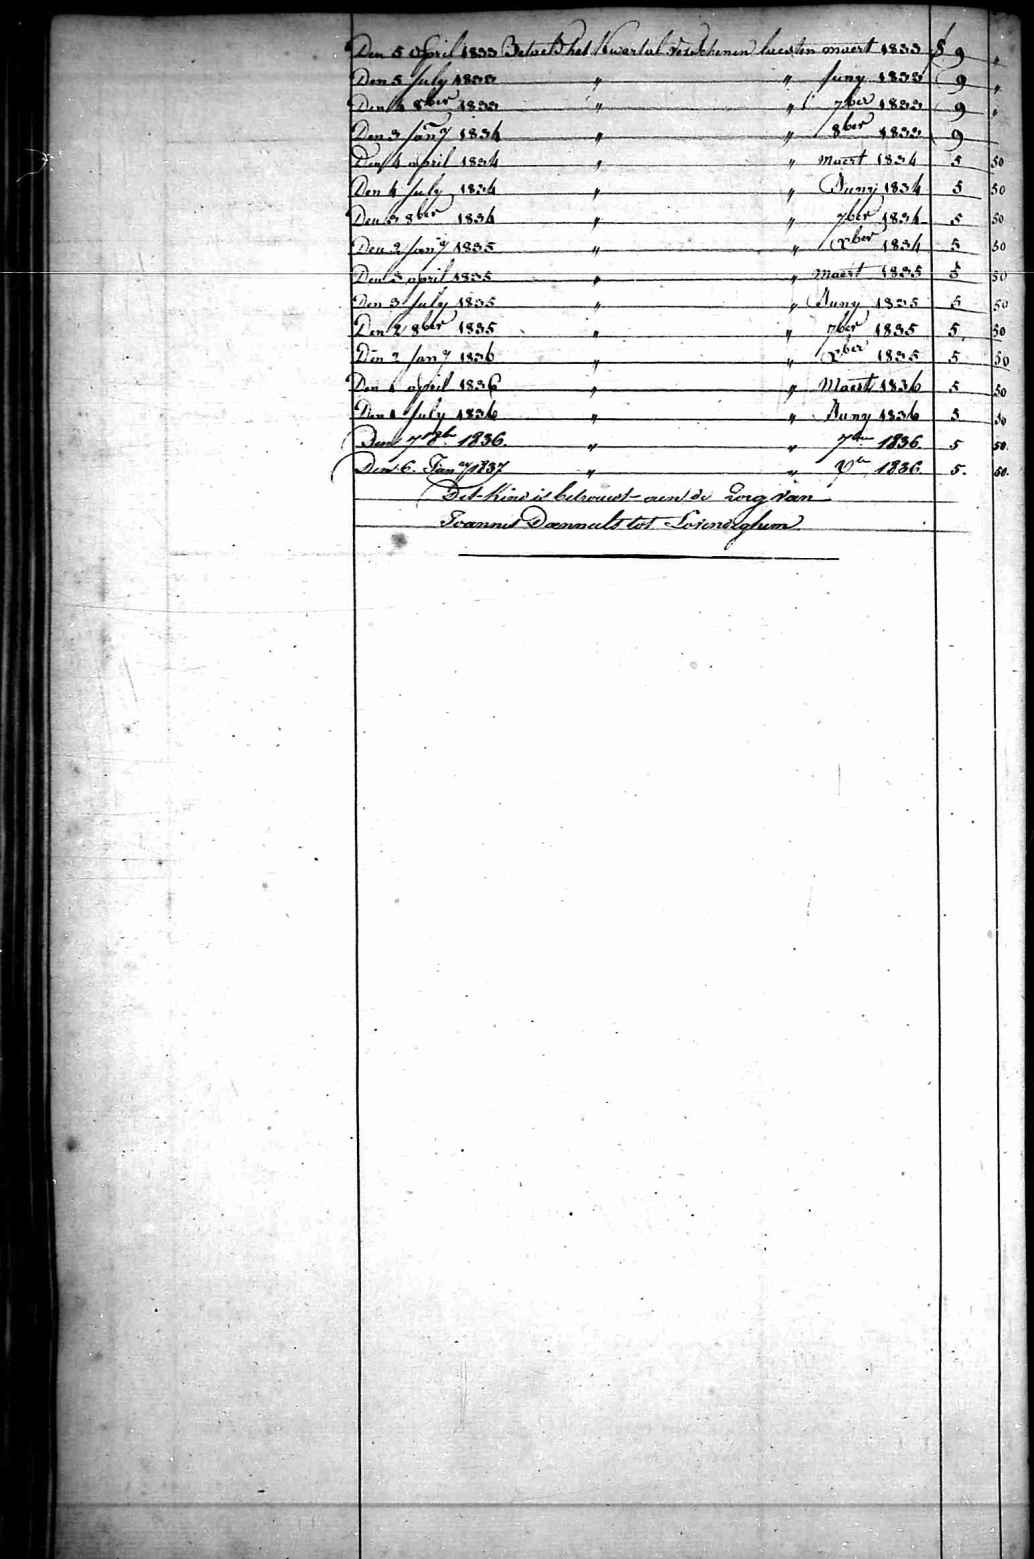 Den 5 April 1833 Betaelt het Kwartael verschenen laesten maert 1833 f 9 "
Den 5 July 1833 " " Juny 1833 9 "
Den 4 8ber 1833 " " 7ber 1833 9 "
Den 3 Jany 1834 " " 8ber 1833 9
Den 4 april 1834 " " maert 1834 5 50
Den 4 July 1834 " " Juny 1834 5 50
Den 3 8ber 1834 " " 7ber 1834 5 50
Den 2 Jany 1835 " " Xber 1834 5 50
Den 3 april 1835 " " maert 1835 5 50
Den 3 July 1835 " " Juny 1835 5 50
Den 2 8ber 1835 " " 7ber 1835 5 50
Den 2 Jany 1836 " " Xber 1835 5 50
Den 1 april 1836 " " Maert 1836 5 50
Den 1 July 1836 " " Juny 1836 5 50
Den 7 8br 1836. " " 7ber 1836. 5 50.
Den 6. Jany 1837 " " Xbr 1836. 5. 50.
Dit kind is betrouwt aen de zorg van
Joannes tot